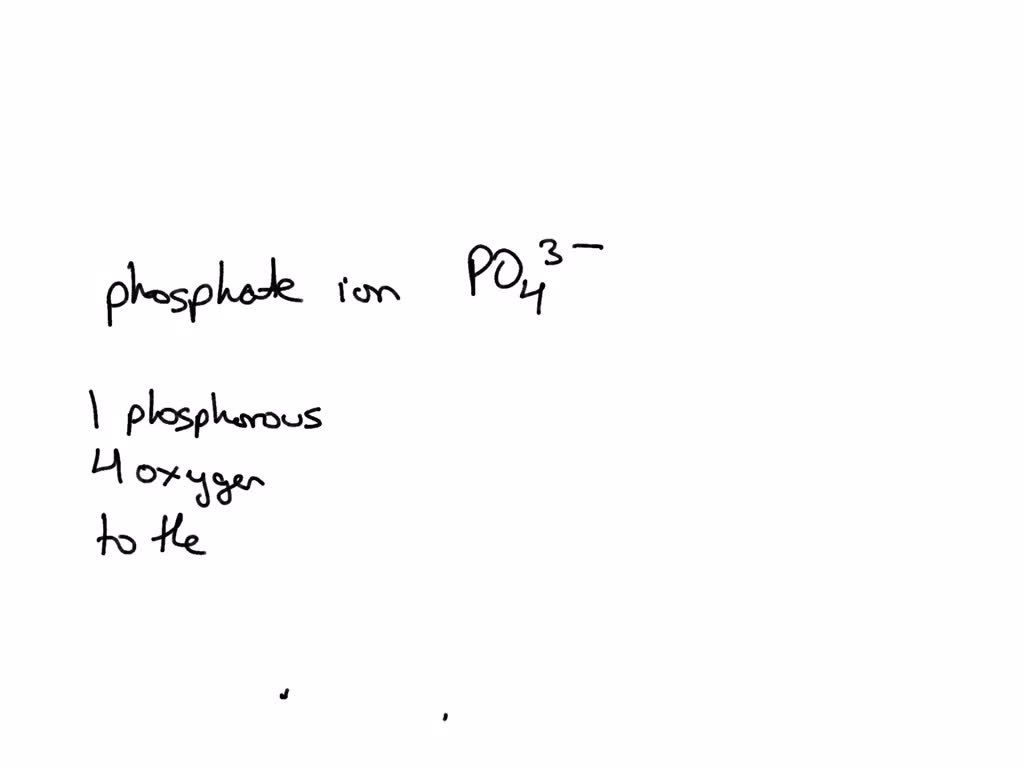 phosphate ion PO₄³⁻
1 phosphorous
4 oxygen
to the